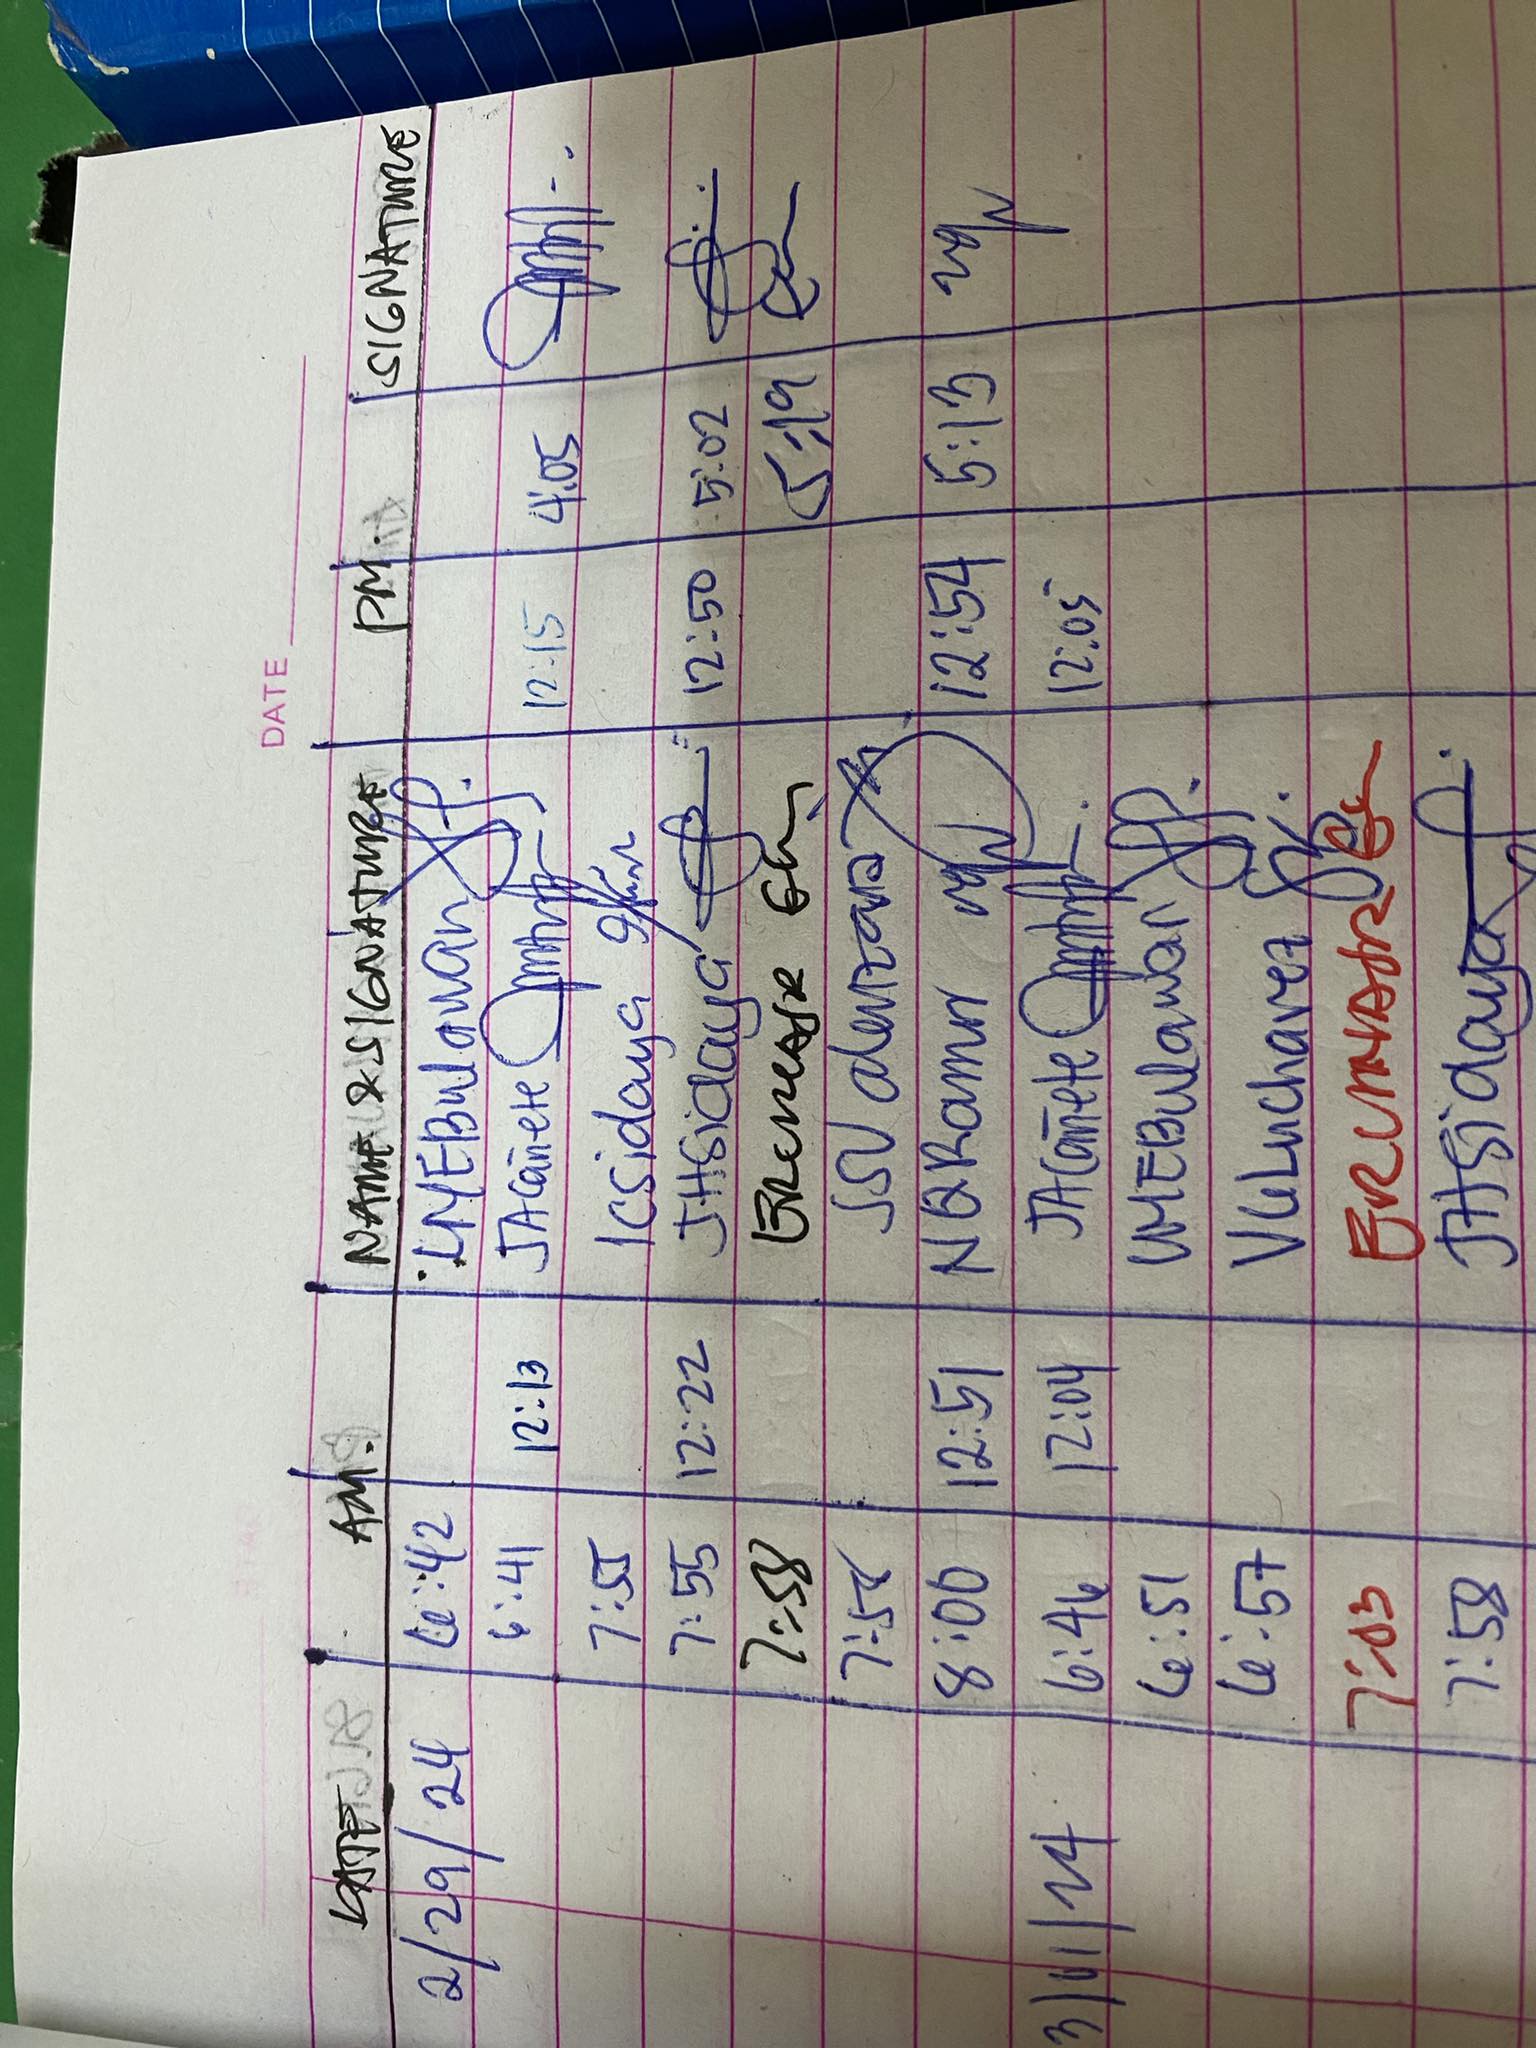 DATE
DATE AM. NAME & SIGNATURE PM. SIGNATURE
2/29/24 6:42 LMEBulawan
6:41 12:13 JACañete 12:15 4:05
7:55 ICSidaya
7:55 12:22 JHSidaya 12:50 5:02
7:58 5:19
7:58
8:00 12:51 NBRamir 12:54 5:13
3/01/24 6:46 12:04 JACañete 12:05
6:51 LMEBulawan
6:57 VCLuchavez
7:03
7:58 JHSidaya